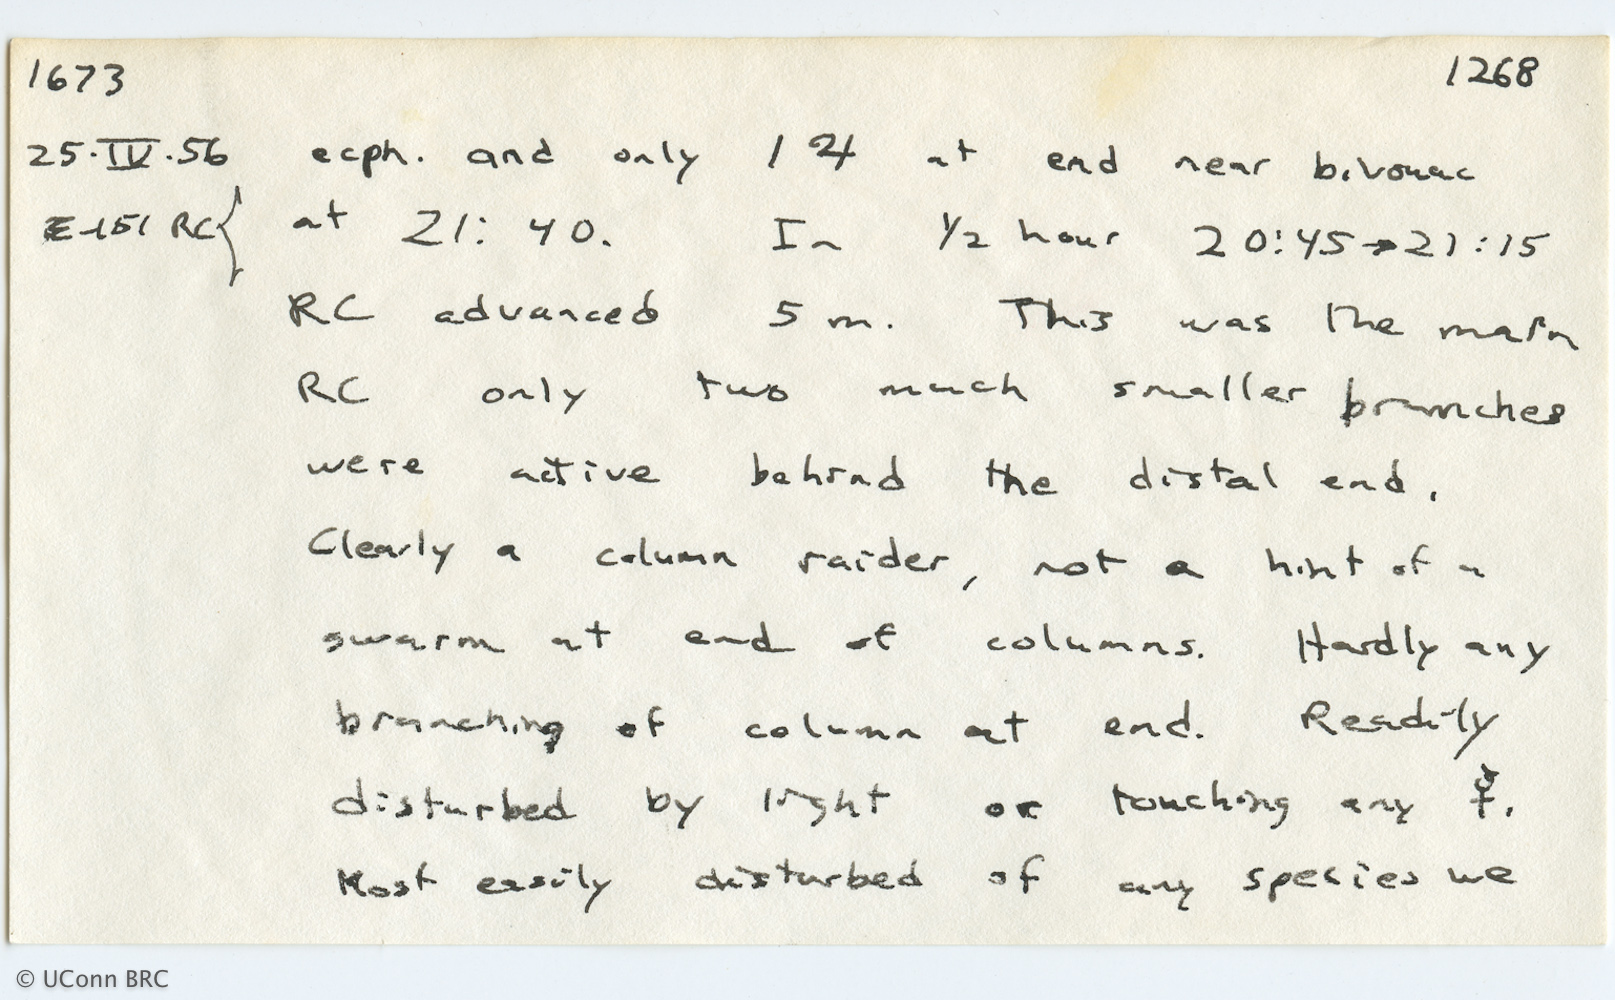 1673 1268
25·IV·56 ecph. and only 1 ♃ at end near bivouac
E-151 RC{ at 21:40. In 1/2 hour 20:45→21:15
RC advanced 5 m. This was the main
RC only two much smaller branches
were active behind the distal end.
Clearly a column raider, not a hint of a
swarm at end of columns. Hardly any
branching of column at end. Readily
disturbed by light or touching any ☿.
Most easily disturbed of any species we
© UConn BRC